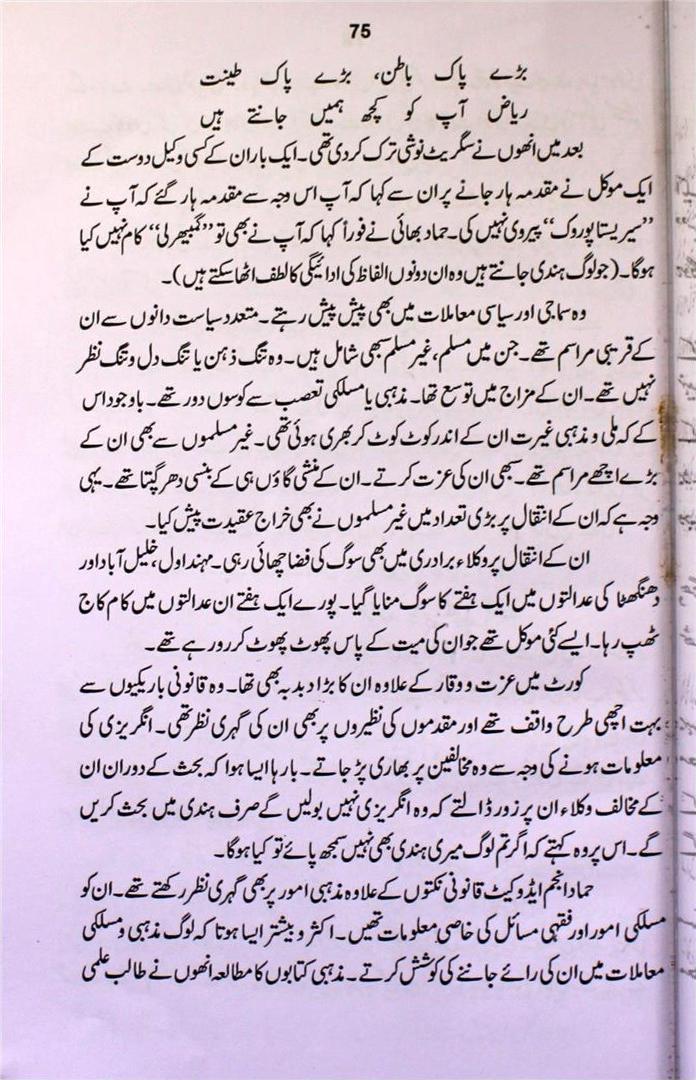 75
بڑے پاک باطن، بڑے پاک طینت
ریاض آپ کو کچھ ہمیں جانتے ہیں
بعد میں انھوں نے سگریٹ نوشی ترک کردی تھی۔ ایک بار ان کے کسی وکیل دوست کے
ایک موکل نے مقدمہ ہار جانے پر ان سے کہا کہ آپ اس وجہ سے مقدمہ ہار گئے کہ آپ نے
‘‘سیریستا پوروک’’ پیروی نہیں کی۔ حماد بھائی نے فوراً کہا کہ آپ نے بھی تو ‘‘گمبھیرلی’’ کام نہیں کیا
ہوگا۔ (جو لوگ ہندی جانتے ہیں وہ ان دونوں الفاظ کی ادائیگی کا لطف اٹھا سکتے ہیں)۔
وہ سماجی اور سیاسی معاملات میں بھی پیش پیش رہتے۔ متعدد سیاست دانوں سے ان
کے قریبی مراسم تھے۔ جن میں مسلم، غیر مسلم سبھی شامل ہیں۔ وہ تنگ ذہن یا تنگ دل و تنگ نظر
نہیں تھے۔ ان کے مزاج میں توسع تھا۔ مذہبی یا مسلکی تعصب سے کوسوں دور تھے۔ باوجود اس
کے کہ ملی و مذہبی غیرت ان کے اندر کوٹ کوٹ کر بھری ہوئی تھی۔ غیر مسلموں سے بھی ان کے
بڑے اچھے مراسم تھے۔ سبھی ان کی عزت کرتے۔ ان کے منشی گاؤں ہی کے بنسی دھر گپتا تھے۔ یہی
وجہ ہے کہ ان کے انتقال پر بڑی تعداد میں غیر مسلموں نے بھی خراج عقیدت پیش کیا۔
ان کے انتقال پر وکلاء برادری میں بھی سوگ کی فضا چھائی رہی۔ مہنداول، خلیل آباد اور
دھنگھٹا کی عدالتوں میں ایک ہفتے کا سوگ منایا گیا۔ پورے ایک ہفتے ان عدالتوں میں کام کاج
ٹھپ رہا۔ ایسے کئی موکل تھے جو ان کی میت کے پاس پھوٹ پھوٹ کر رو رہے تھے۔
کورٹ میں عزت و وقار کے علاوہ ان کا بڑا دبدبہ بھی تھا۔ وہ قانونی باریکیوں سے
بہت اچھی طرح واقف تھے اور مقدموں کی نظیروں پر بھی ان کی گہری نظر تھی۔ انگریزی کی
معلومات ہونے کی وجہ سے وہ مخالفین پر بھاری پڑ جاتے۔ بارہا ایسا ہوا کہ بحث کے دوران ان
کے مخالف وکلاء ان پر زور ڈالتے کہ وہ انگریزی نہیں بولیں گے صرف ہندی میں بحث کریں
گے۔ اس پر وہ کہتے کہ اگر تم لوگ میری ہندی بھی نہیں سمجھ پائے تو کیا ہوگا۔
حماد انجم ایڈوکیٹ قانونی نکتوں کے علاوہ مذہبی امور پر بھی گہری نظر رکھتے تھے۔ ان کو
مسلکی امور اور فقہی مسائل کی خاصی معلومات تھیں۔ اکثر و بیشتر ایسا ہوتا کہ لوگ مذہبی و مسلکی
معاملات میں ان کی رائے جاننے کی کوشش کرتے۔ مذہبی کتابوں کا مطالعہ انھوں نے طالب علمی